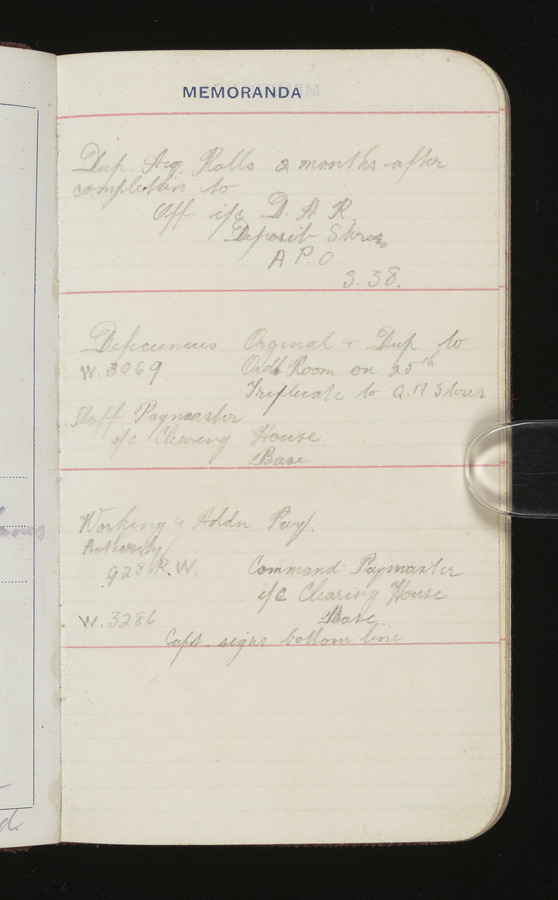 MEMORANDA
Dup. Acq. Rolls 2 months after
completion to
Off. i/c D. A. R.
Deposit Stores
A P O
S. 38.
Deficiencies Orginal + Dup to
W. 3069 Ord Room on 25th
Triplicate to Q. M Stores
Staff Paymaster
i/c Clearing House
Base
Working & Addn Pay.
Authority
928 R. W. Command Paymaster
i/c Clearing House
W. 3286 Base.
Capt. signs bottom line